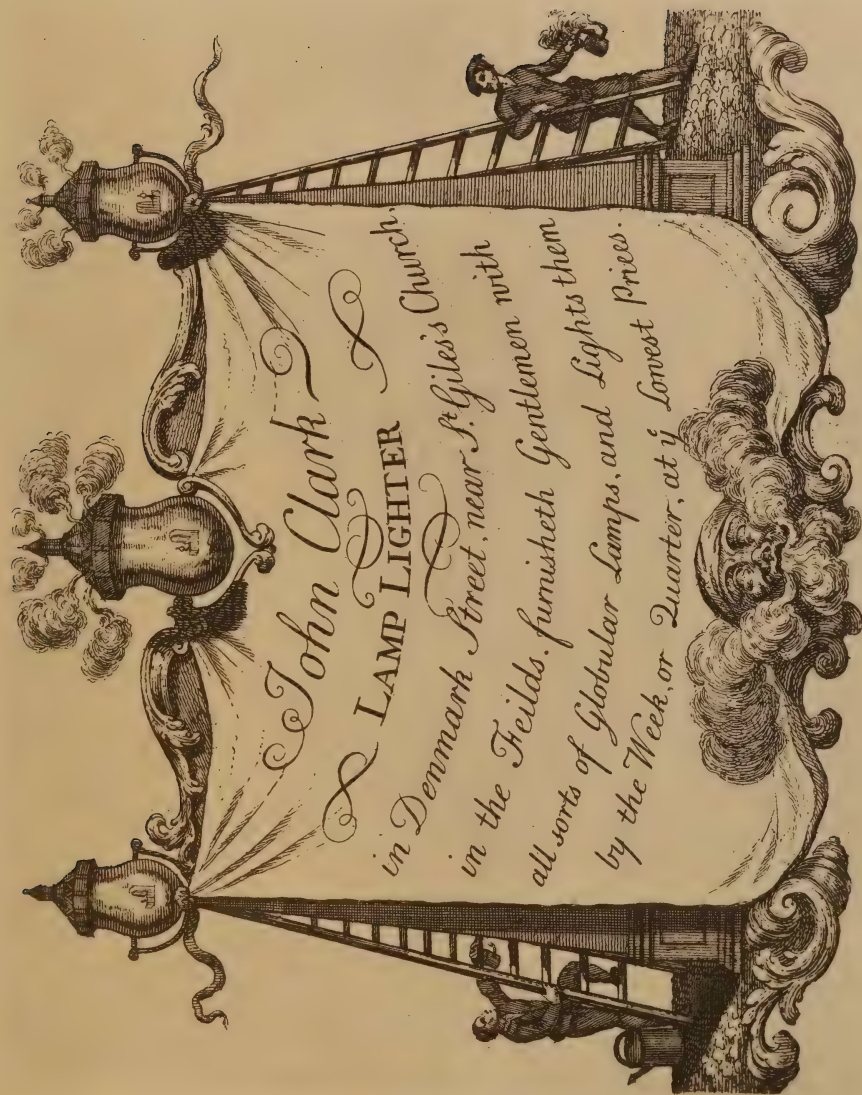 John Clark
LAMP LIGHTER
in Denmark Street, near St. Giles's Church,
in the Feilds. furnisheth Gentlemen with
all sorts of Globular Lamps, and Lights them
by the Week, or Quarter, at ẏ Lowest Prices.